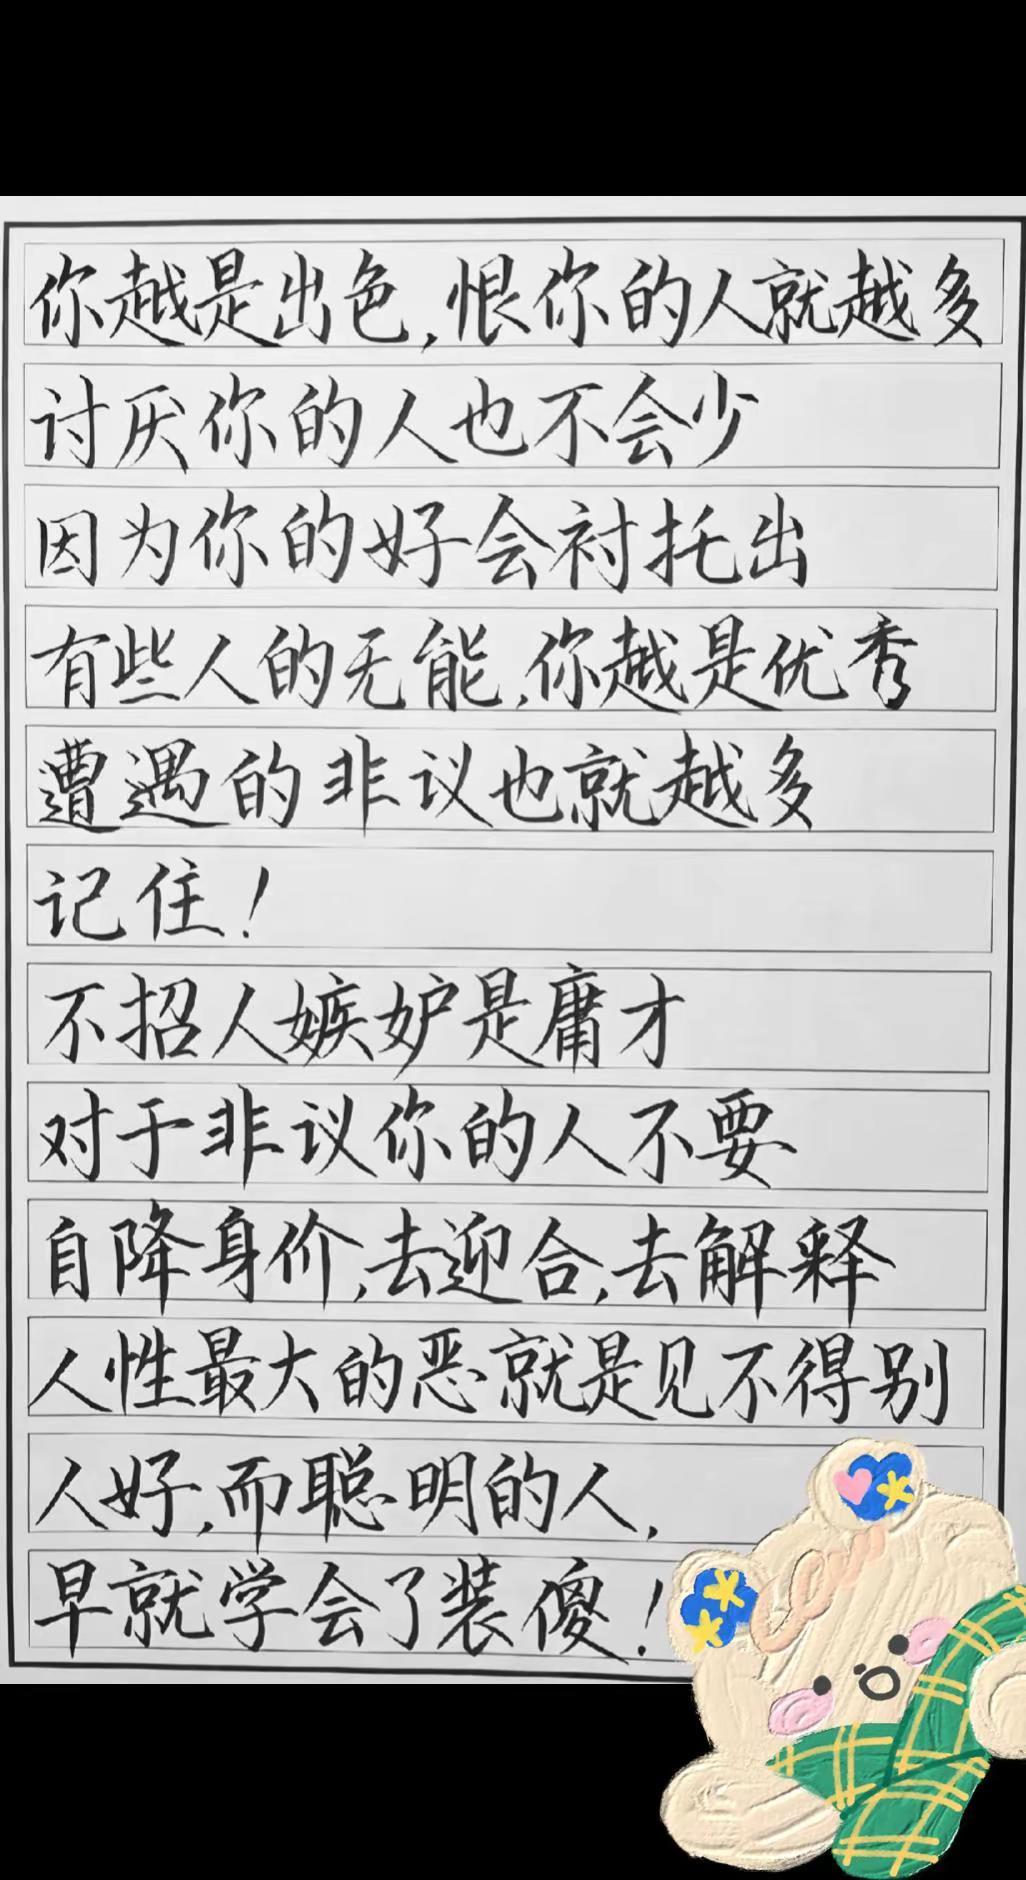 你越是出色,恨你的人就越多
讨厌你的人也不会少
因为你的好会衬托出
有些人的无能,你越是优秀
遭遇的非议也就越多
记住!
不招人嫉妒是庸才
对于非议你的人不要
自降身价,去迎合,去解释
人性最大的恶就是见不得别
人好,而聪明的人,
早就学会了装傻!